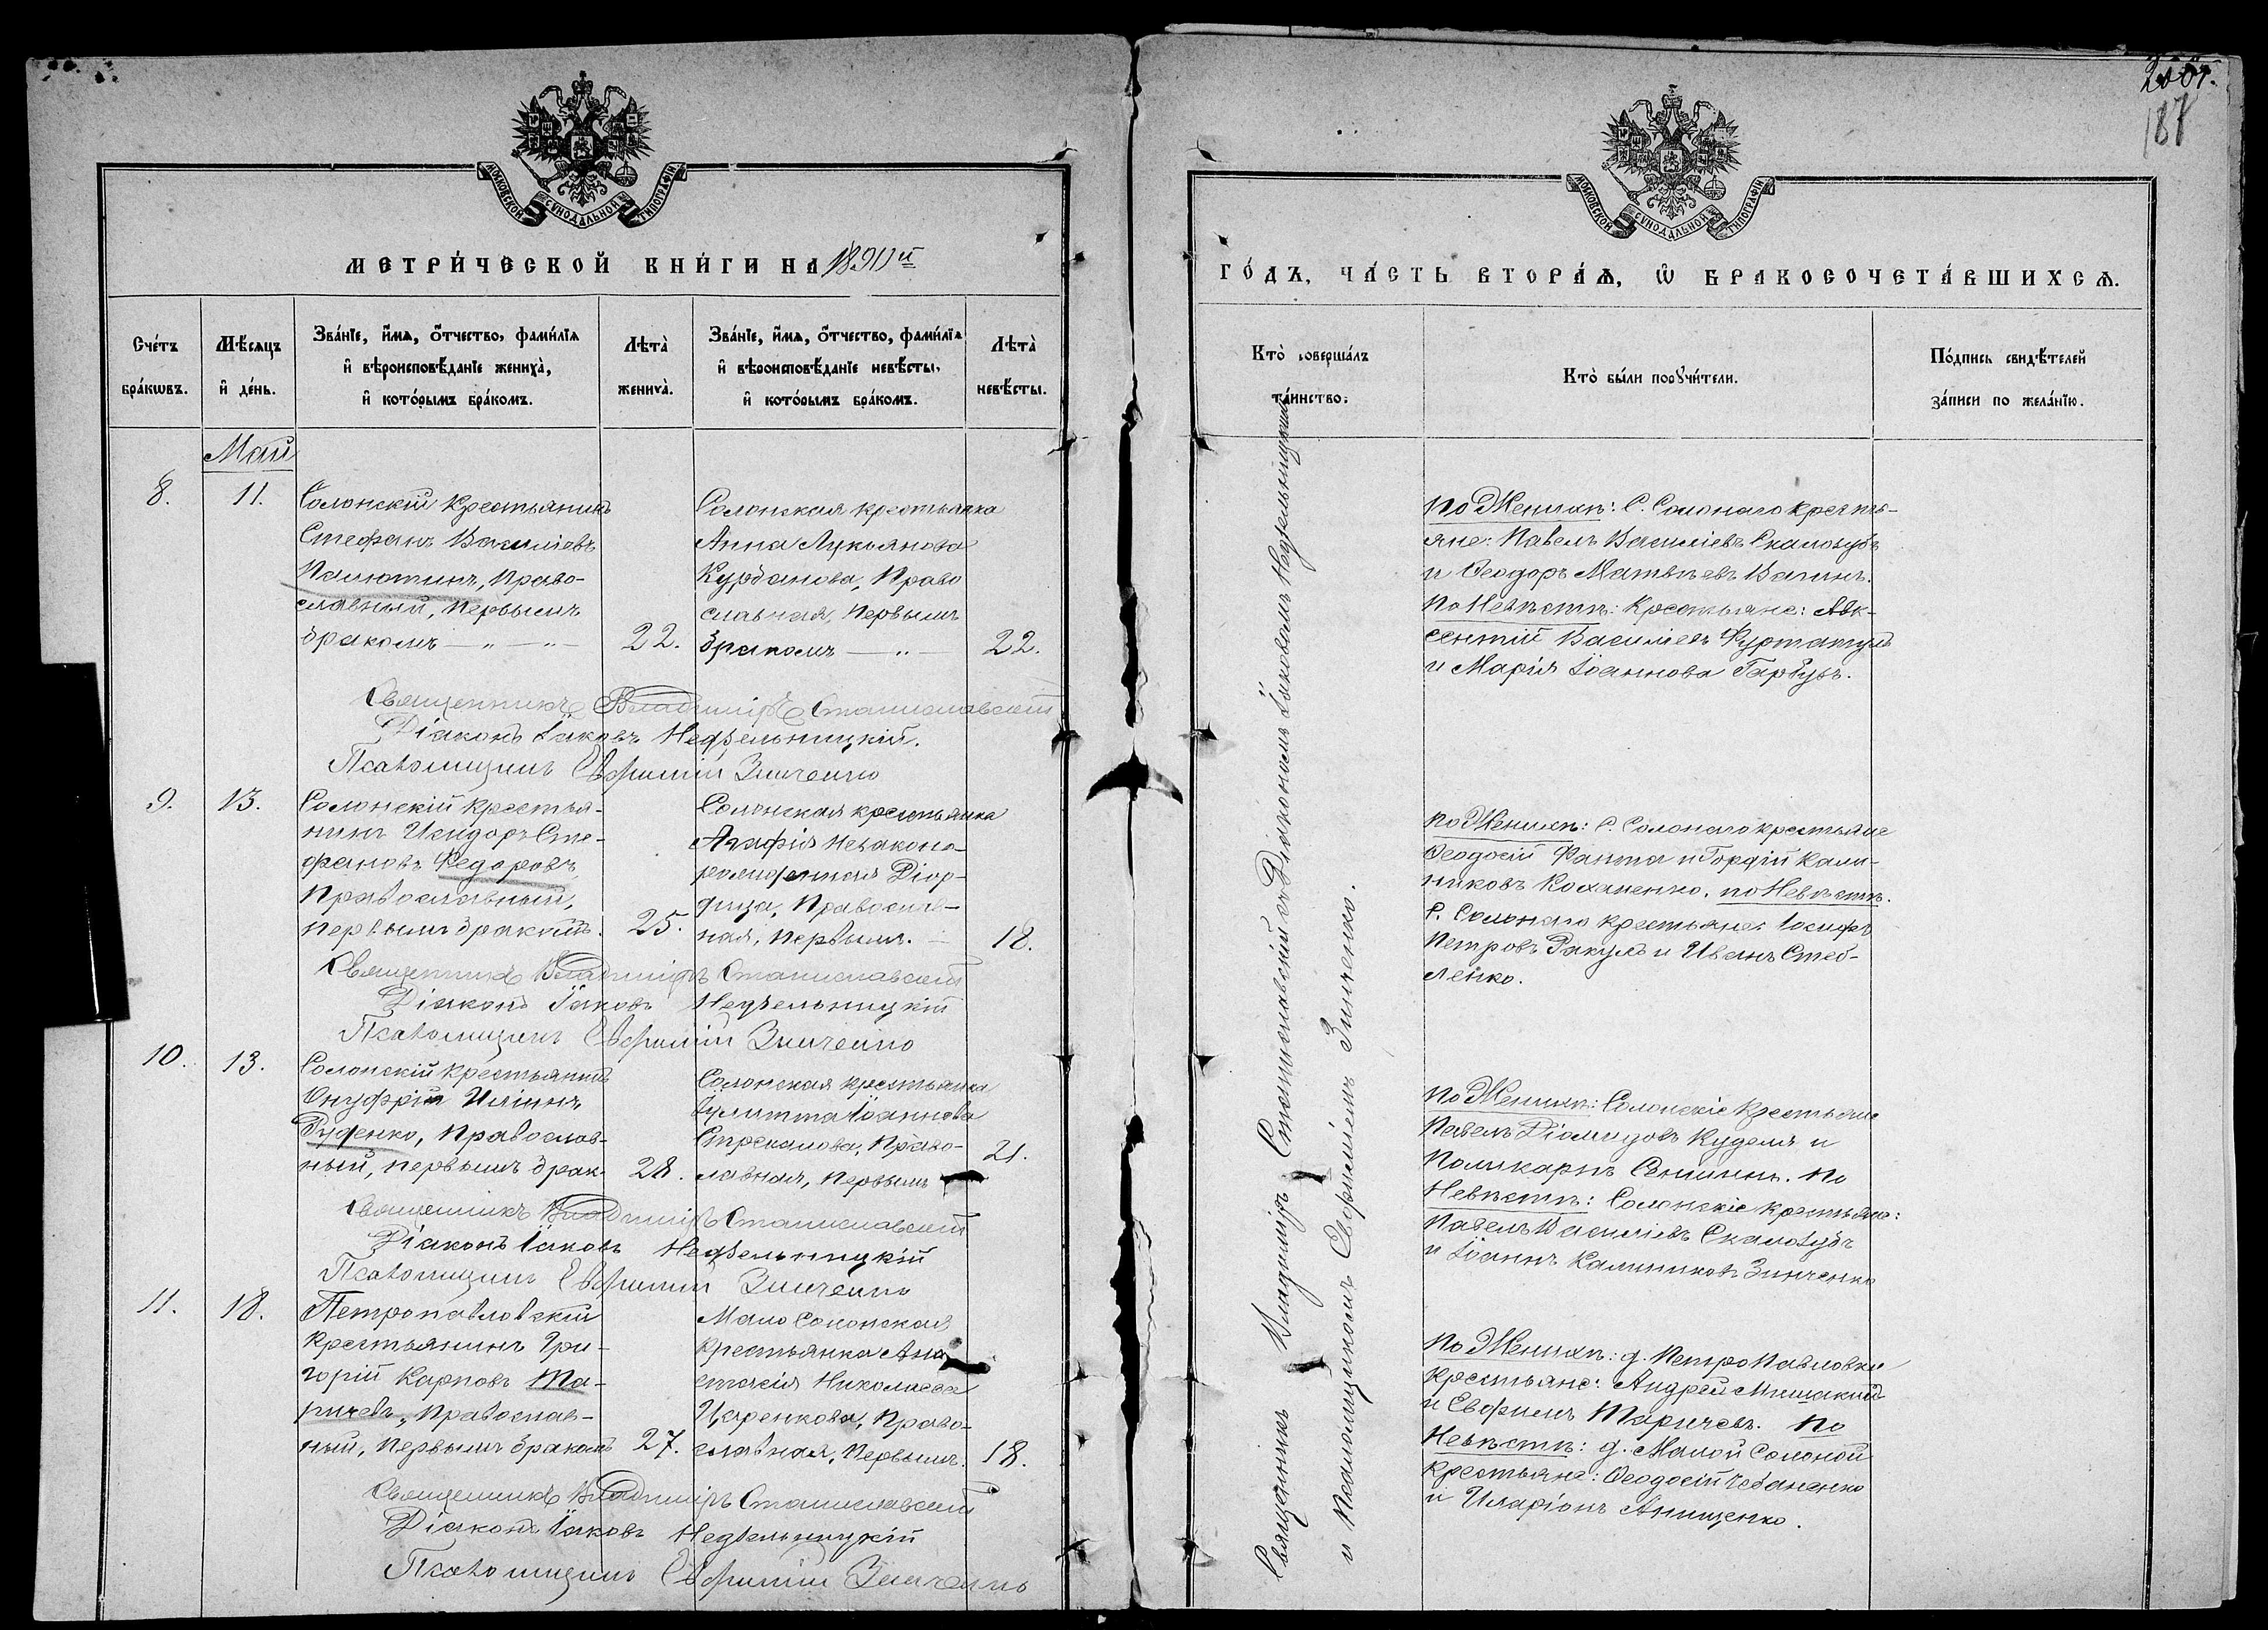 МОСКОВСКОЙ СѴНОДАЛЬНОЙ ТИПОГРАФІИ
МЕТРИ́ЧЕСКОЙ КНИ́ГИ НА 1890й
Сче́тъ бра́кѡвъ.
Мѣ́сяцъ и҆ де́нь.
Зва́нїе, и҆́мѧ, ѻ҆́тчество, фами́лїѧ
и҆ вѣроисповѣ́данїе жениха̀,
и҆ кото́рымъ бра́комъ.
Лѣта̀ жениха̀.
Зва́нїе, и҆́мѧ, ѻ҆́тчество, фами́лїѧ
и҆ вѣроисповѣ́данїе невѣ́сты,
и҆ кото́рымъ бра́комъ.
Лѣта̀ невѣ́сты.
Май
8. 11.
Солонскій крестьянинъ
Стефанъ Василіевъ
Палютинъ, право-
славный, первымъ
бракомъ — „ — „ — 22.
Солонская крестьянка
Анна Лукьянова
Курбанова, право
славная, первымъ
бракомъ — „ — 22.
Священникъ Владиміръ Станиславскій
Діаконъ Іаковъ Недѣльницкій.
Псаломщикъ Евфимій Зинченко
9. 13.
Солонскій крестья-
нинъ Исидоръ Сте-
фановъ Федоровъ,
Православный,
первымъ бракомъ. 25.
Солонская крестьянка
Агафія незаконо-
рожденная Діор-
дица, Православ-
ная, первымъ. — 18.
Священникъ Владиміръ Станиславскій
Діаконъ Іаковъ Недѣльницкій
Псаломщикъ Евфимій Зинченко
10. 13.
Солонскій крестьянинъ
Онуфрій Иліинъ
Руденко, православ-
ный, первымъ брак. 28.
Солонская крестьянка
Іулитта Іоаннова
Стрекалова, Право-
славная, первымъ 21.
Священникъ Владиміръ Станиславскій
Діаконъ Іаковъ Недѣльницкій
Псаломщикъ Евфимій Зинченко
11. 18.
Петропавловскій
крестьянинъ Гри-
горій Карповъ Та-
ричевъ, православ-
ный, первымъ бракомъ 27.
Мало Солонская
крестьянка Ана
стасія Николаева
Царенкова, Право-
славная, первымъ. 18.
Священникъ Владиміръ Станиславскій
Діаконъ Іаковъ Недѣльницкій
Псаломщикъ Евфимій Зинченко
187
МОСКОВСКОЙ СѴНОДАЛЬНОЙ ТИПОГРАФІИ
ГО́ДЪ, ЧА́СТЬ ВТОРА́Ѧ, Ѡ҆ БРАКОСОЧЕТА́ВШИХСѦ.
Кто̀ соверша́лъ та́инство.
Кто̀ бы́ли порꙋчи́тели.
По́дпись свидѣ́телей
за́писи по жела́нїю.
Священникъ Владиміръ Станиславскій съ Діакономъ Іаковомъ Недѣльницкимъ
и Псаломщикомъ Евфиміемъ Зинченко.
По Женихѣ: С. Солонаго крестьа-
яне: Павелъ Василіевъ Скалозубъ
и Ѳеодоръ Матвѣевъ Вагинъ.
По Невѣстѣ: крестьяне: Авк-
сентій Василіевъ Фуртатулъ
и Марія Іоаннова Гарбузъ.
По Женихѣ: С. Солонаго крестьяне
Ѳеодосій Фанта и Гордій Кали-
никовъ Коханенко. по Невѣстѣ.
С. Солонаго крестьяне: Іосифъ
Петровъ Ракулъ и Иванъ Стеб-
ленко.
По Женихѣ: Солонскіе крестьяне
Павелъ Діомидовъ Куделя и
Поликарпъ Сенинъ. По
Невѣстѣ: Солонскіе крестьяне:
Павелъ Василіевъ Скалозубъ
и Іоаннъ Калиниковъ Зинченко
По Женихѣ: д. Петропавловки
крестьяне: Андрей Мишакинъ
и Евфимъ Таричевъ. По
Невѣстѣ: д. Малой Солоной
крестьяне: Ѳеодосій Чебаненко
и Иларіонъ Анищенко.